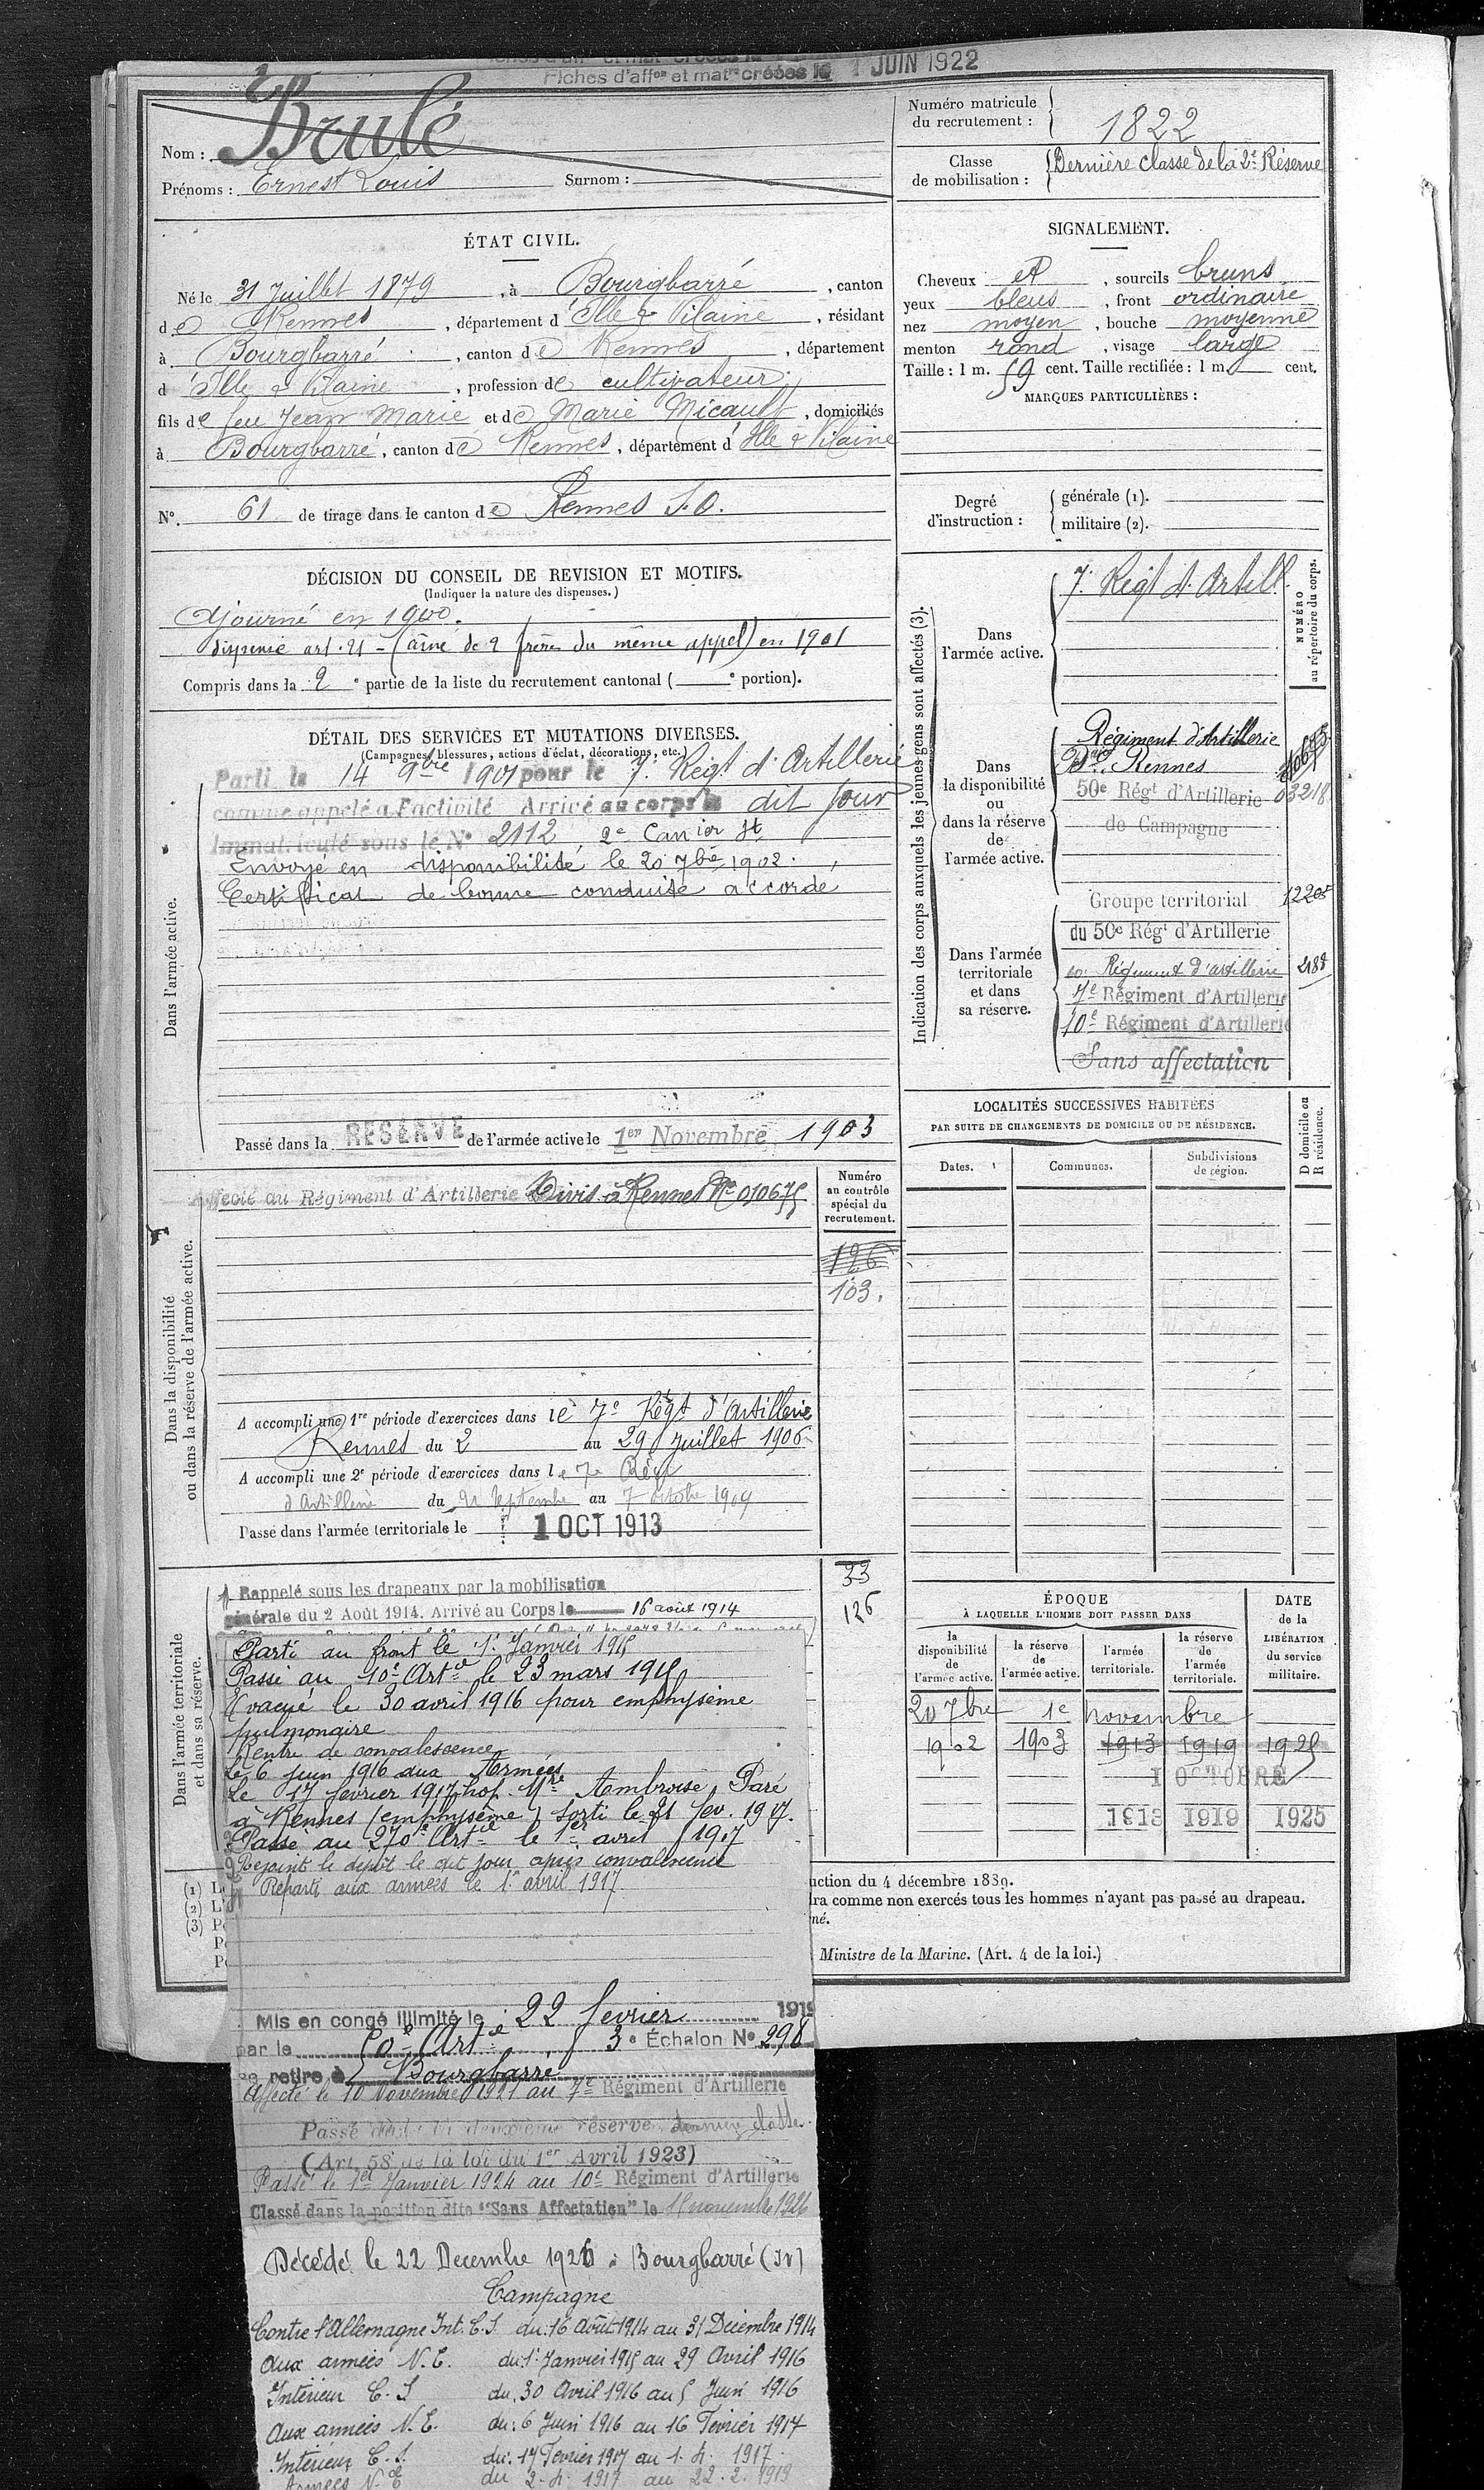 Fiches d'affon et matle créées le 1 JUIN 1922
Nom : Brulé
Prénoms : Ernest Louis Surnom :
Numéro matricule
du recrutement : 1822
Classe
de mobilisation : Dernière classe de la 2e Réserve
ÉTAT CIVIL.
Né le 31 Juillet 1879, à Bourgbarré, canton
de Rennes, département d'Ille & Vilaine, résidant
à Bourgbarré, canton de Rennes, département
d'Ille & Vilaine, profession de cultivateur
fils de feu Jean Marie et de Marie Micault, domiciliés
à Bourgbarré, canton de Rennes, département d'Ille & Vilaine
N°. 61 de tirage dans le canton de Rennes S.O.
SIGNALEMENT.
Cheveux et, sourcils bruns
yeux bleus, front ordinaire
nez moyen, bouche moyenne
menton rond, visage large
Taille : 1 m. 59 cent. Taille rectifiée : 1 m. cent.
MARQUES PARTICULIÈRES :
Degré
d'instruction :
générale (1).
militaire (2).
DÉCISION DU CONSEIL DE REVISION ET MOTIFS.
(Indiquer la nature des dispenses.)
Ajourné en 1900.
Dispensé art. 21 - (aîné de 2 frères du même appel) en 1901
Compris dans la 2e partie de la liste du recrutement cantonal ( e portion).
DÉTAIL DES SERVICES ET MUTATIONS DIVERSES.
(Campagnes, blessures, actions d'éclat, décorations, etc.)
Dans l'armée active.
Parti le 14 9bre 1901 pour le 7. Régt d'Artillerie
comme appelé à l'activité Arrivé au corps le dit jour
Immatriculé sous le N° 2112 2e Canier St
Envoyé en disponibilité le 20 7bre 1902.
Certificat de bonne conduite accordé
Passé dans la RÉSERVE de l'armée active le 1er Novembre 1903
Indication des corps auxquels les jeunes gens sont affectés (3).
NUMÉRO
au répertoire du corps.
Dans
l'armée active.
7. Régt d'Artill.
Dans
la disponibilité
ou
dans la réserve
de
l'armée active.
Régiment d'Artillerie
Dre Rennes
50e Régt d'Artillerie 03218
de Campagne
Dans l'armée
territoriale
et dans
sa réserve.
Groupe territorial 12205
du 50e Régt d'Artillerie
50. Régiment d'artillerie 2188
7e Régiment d'Artillerie
10e Régiment d'Artillerie
Sans affectation
LOCALITÉS SUCCESSIVES HABITÉES
PAR SUITE DE CHANGEMENTS DE DOMICILE OU DE RÉSIDENCE.
Dates.
Communes.
Subdivisions
de région.
D domicile ou
R résidence.
Dans la disponibilité
ou dans la réserve de l'armée active.
Affecté au Régiment d'Artillerie Divis. à Rennes No 010675
Numéro
au contrôle
spécial du
recrutement.
126
103.
A accompli une 1re période d'exercices dans le 7e Régt d'Artillerie
Rennes du 2 au 29 Juillet 1906
A accompli une 2e période d'exercices dans le 7e Régt
d'Artillerie du 21 Septembre au 7 octobre 1909
Passé dans l'armée territoriale le 1 OCT 1913
Dans l'armée territoriale
et dans sa réserve.
33
126
Rappelé sous les drapeaux par la mobilisation
générale du 2 Août 1914. Arrivé au Corps le 16 août 1914
Parti au front le 1r Janvier 1915
Passé au 10e Artie le 23 mars 1915
Evacué le 30 avril 1916 pour emphysème
pulmonaire
Rentre de convalescence
Le 6 juin 1916 aux Armées
Le 17 fevrier 1917 hop. Mre Ambroise Paré
à Rennes (emphysème) Sorti le 21 fev. 1917.
Passé au 270e Artie le 1er avril 1917
Rejoint le dépôt le dit jour après convalescence
Reparti aux armées le 1r avril 1917.
ÉPOQUE
À LAQUELLE L'HOMME DOIT PASSER DANS
la
disponibilité
de
l'armée active.
la réserve
de
l'armée active.
l'armée
territoriale.
la réserve
de
l'armée
territoriale.
DATE
de la
LIBÉRATION
du service
militaire.
20 7bre 1e novembre
1902 1903 1913 1919 1925
1 OCTOBRE
1913 1919 1925
(1) L
(2) L'
(3) P
uction du 4 décembre 1889.
dra comme non exercés tous les hommes n'ayant pas passé au drapeau.
né.
Ministre de la Marine. (Art. 4 de la loi.)
Mis en congé illimité le 22 fevrier 1919
par le 50e Artie 3e Échelon No 298
se retire à Bourgbarré
Affecté le 10 Novembre 1921 au 7e Régiment d'Artillerie
Passé dans la deuxième réserve dernière classe.
(Art. 58 de la loi du 1er Avril 1923)
Passé le 1er Janvier 1924 au 10e Régiment d'Artillerie
Classé dans la position dite "Sans Affectation" le 15 novembre 1926
Décédé le 22 Decembre 1926 à Bourgbarré (IV)
Campagne
Contre l'Allemagne Int. C.S. du: 16 Août 1914 au 31 Décembre 1914
Aux armées N.E. du: 1r Janvier 1915 au 29 Avril 1916
Intérieur C.S du. 30 Avril 1916 au 5 Juin 1916
Aux armées N.E. du: 6 Juin 1916 au 16 Février 1917
Intérieur C.S. du: 17 Fevrier 1917 au 1. 4. 1917.
Armées N. E du 2. 4. 1917 au 22. 2. 1919